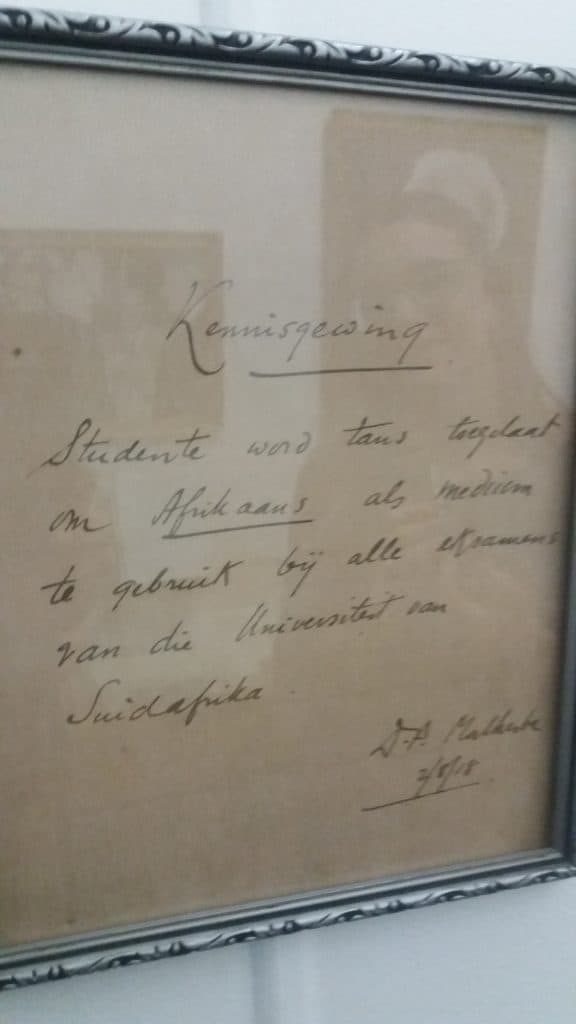 Kennisgewing
Studente word tans toegelaat
om Afrikaans als medium
te gebruik bij alle eksamens
van die Universiteit van
Suidafrika.
D.F. Malherbe
2/8/18